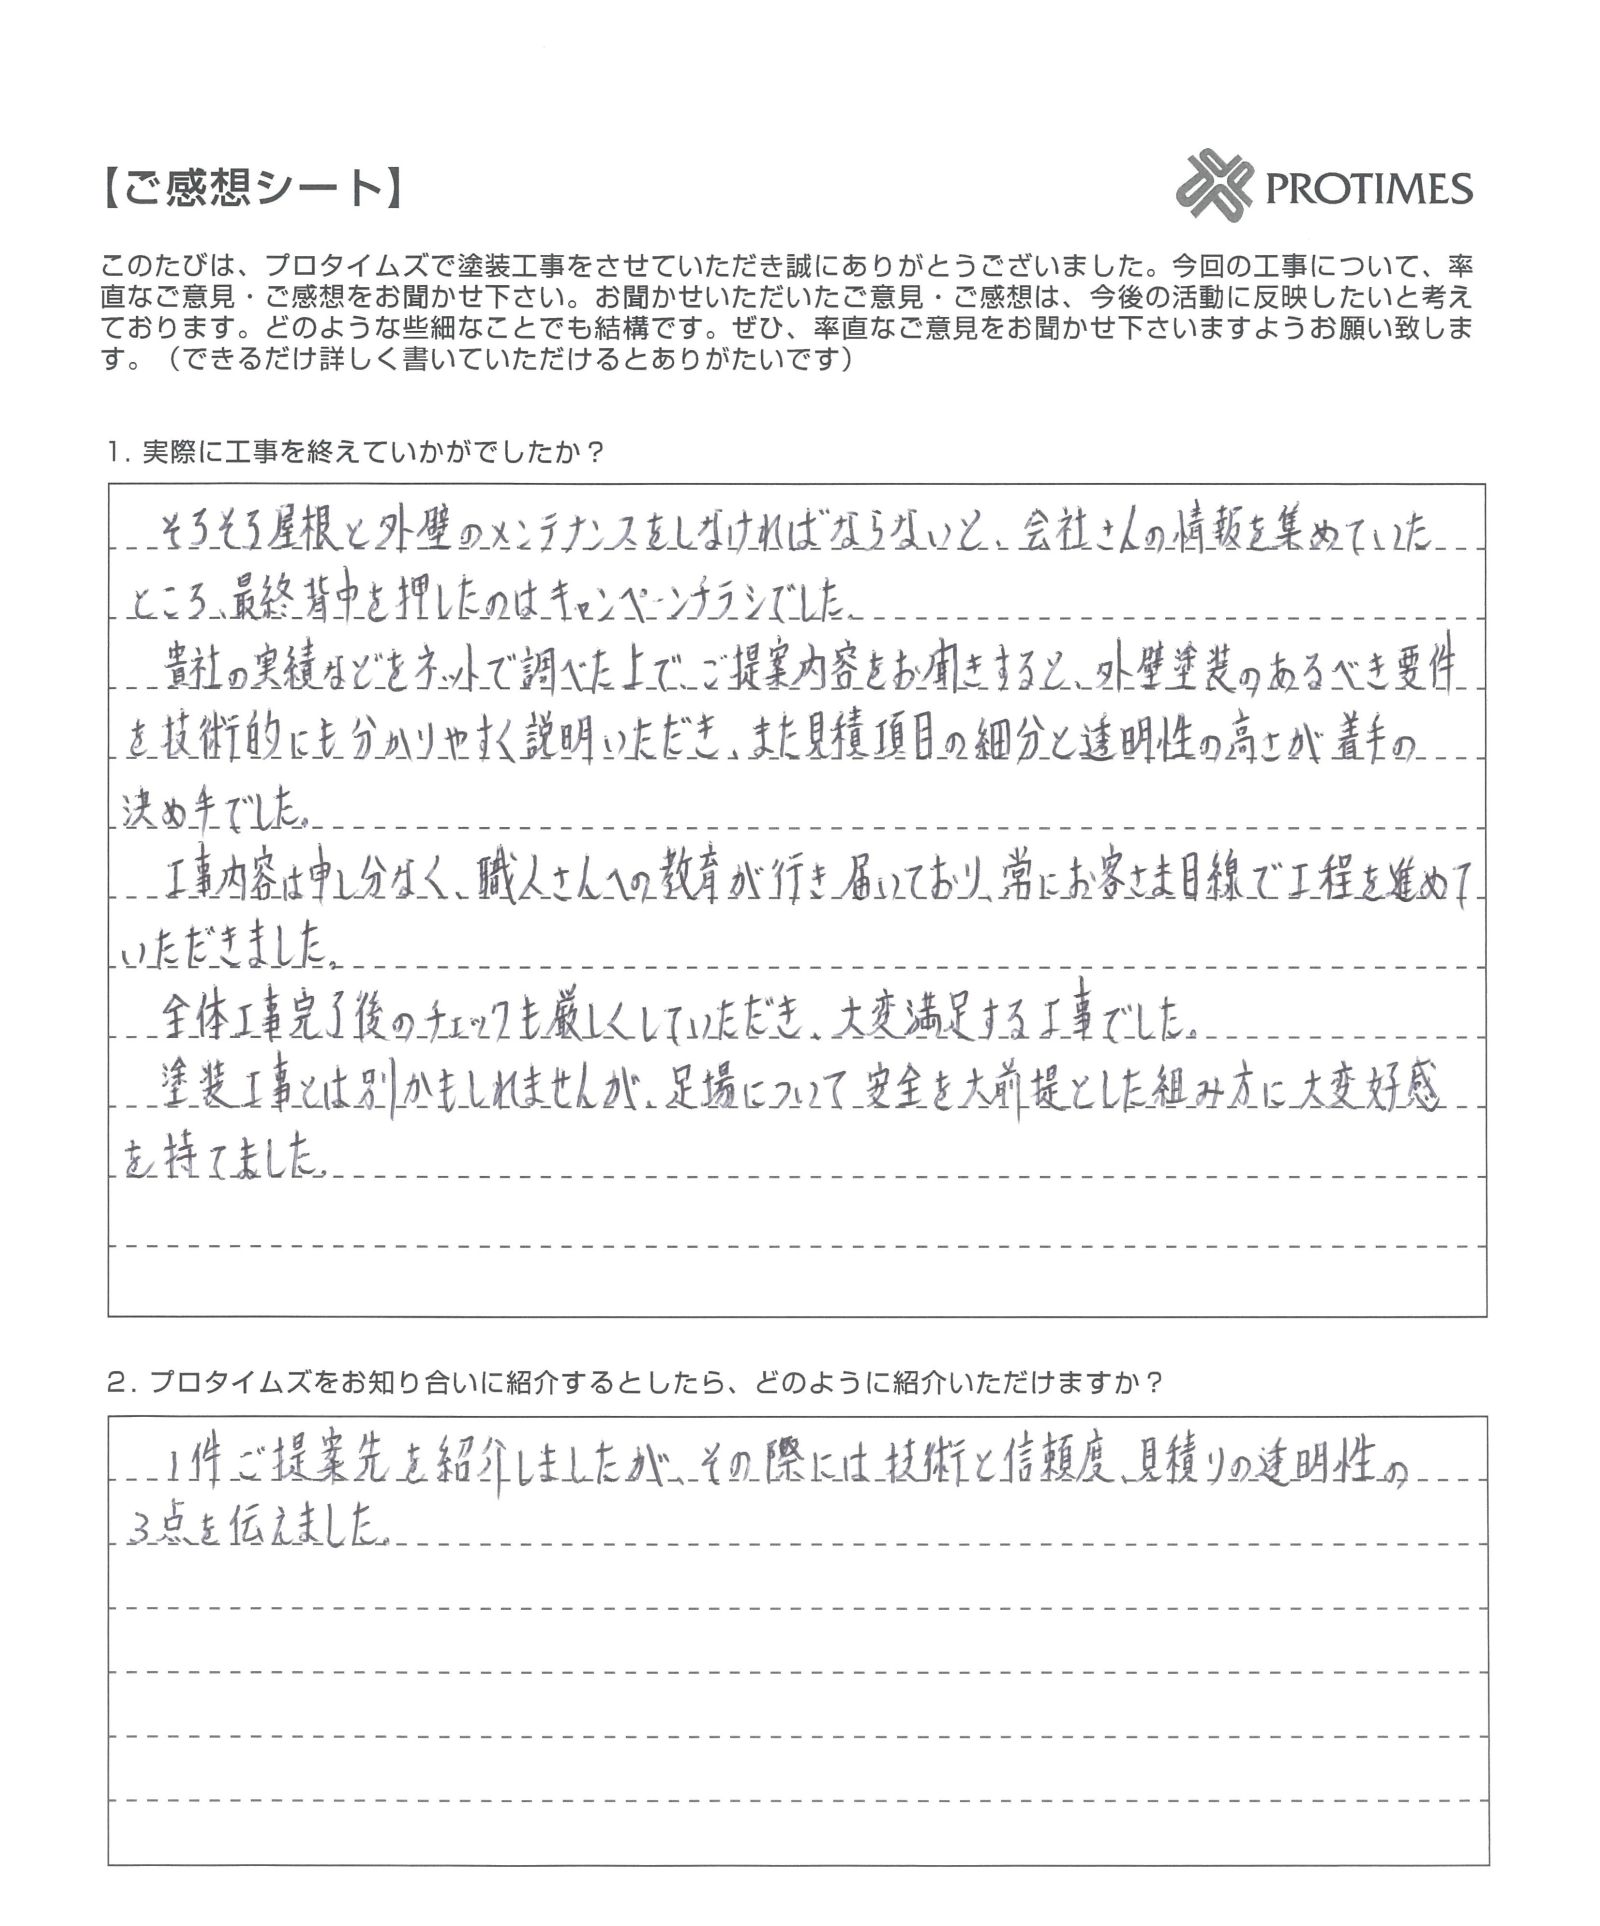 【ご感想シート】
PROTIMES
このたびは、プロタイムズで塗装工事をさせていただき誠にありがとうございました。今回の工事について、率
直なご意見・ご感想をお聞かせ下さい。お聞かせいただいたご意見・ご感想は、今後の活動に反映したいと考え
ております。どのような些細なことでも結構です。ぜひ、率直なご意見をお聞かせ下さいますようお願い致しま
す。（できるだけ詳しく書いていただけるとありがたいです）
1. 実際に工事を終えていかがでしたか？
そろそろ屋根と外壁のメンテナンスをしなければならないと、会社さんの情報を集めていた
ところ、最終背中を押したのはキャンペーンチラシでした。
貴社の実績などをネットで調べた上で、ご提案内容をお聞きすると、外壁塗装のあるべき要件
を技術的にも分かりやすく説明いただき、また見積項目の細分と透明性の高さが着手の
決め手でした。
工事内容は申し分なく、職人さんへの教育が行き届いており、常にお客さま目線で工程を進めて
いただきました。
全体工事完了後のチェックも厳しくしていただき、大変満足する工事でした。
塗装工事とは別かもしれませんが、足場について安全を大前提とした組み方に大変好感
を持てました。
2. プロタイムズをお知り合いに紹介するとしたら、どのように紹介いただけますか？
1件ご提案先を紹介しましたが、その際には技術と信頼度、見積りの透明性の
3点を伝えました。